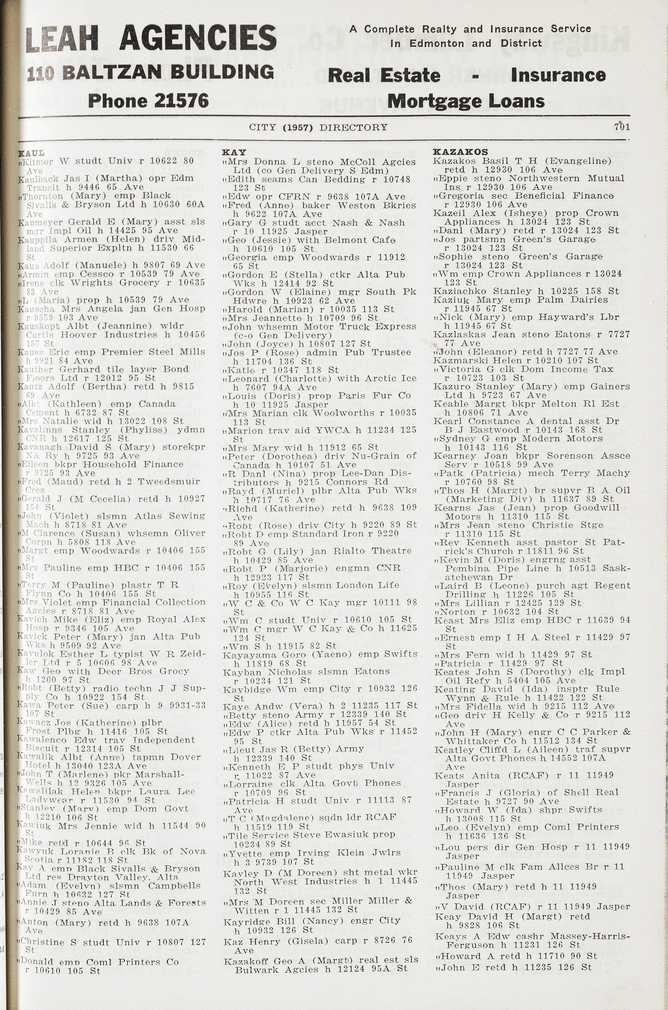 LEAH AGENCIES
110 BALTZAN BUILDING
Phone 21576
A Complete Realty and Insurance Service
In Edmonton and District
Real Estate - Insurance
Mortgage Loans
CITY (1957) DIRECTORY
701
KAUL
„Kitmor W studt Univ r 10622 80
Ave
Kaulback Jas I (Martha) opr Edm
Transit h 9446 65 Ave
„Thornton (Mary) emp Black
Sivalls & Bryson Ltd h 10630 60A
Ave
Kaumeyer Gerald E (Mary) asst sls
mgr Impl Oil h 14425 95 Ave
Kauppila Armen (Helen) driv Mid-
land Superior Expltn h 11530 66
St
Kaus Adolf (Manuele) h 9807 69 Ave
„Armin emp Cessco r 10539 79 Ave
„Irene clk Wrights Grocery r 10635
83 Ave
„L (Maria) prop h 10539 79 Ave
Kauscha Mrs Angela jan Gen Hosp
r 9559 103 Ave
Kauskopf Albt (Jeannine) wldr
Curtis Hoover Industries h 10456
157 St
Kauss Eric emp Premier Steel Mills
h 9921 84 Ave
Kauther Gerhard tile layer Bond
Floors Ltd r 12012 95 St
Kautz Adolf (Bertha) retd h 9815
69 Ave
„Albt (Kathleen) emp Canada
Cement h 6732 87 St
„Mrs Natalie wid h 13022 108 St
Kavalinns Stanley (Phyliss) ydmn
CNR h 12617 125 St
Kavanagh David S (Mary) storekpr
NA Ry h 9725 93 Ave
„Eileen bkpr Household Finance
r 9725 93 Ave
„Fred (Maud) retd h 2 Tweedsmuir
Cres
„Gerald J (M Cecelia) retd h 10927
154 St
„John (Violet) slsmn Atlas Sewing
Mach h 8718 81 Ave
„M Clarence (Susan) whsemn Oliver
Corpn h 5808 118 Ave
„Margt emp Woodwards r 10406 155
St
„Mrs Pauline emp HBC r 10406 155
St
„Terry M (Pauline) plastr T R
Flynn Co h 10406 155 St
„Mrs Violet emp Financial Collection
Agcies r 8718 81 Ave
Kavich Mike (Eliz) emp Royal Alex
Hosp r 9346 105 Ave
Kavick Peter (Mary) jan Alta Pub
Wks h 9509 92 Ave
Kavulok Esther L typist W R Zeid-
ler Ltd r 5 10606 98 Ave
Kaw Geo with Deer Bros Grocy
h 1200 97 St
„Robt (Betty) radio techn J J Sup-
ply Co h 10922 154 St
Kawa Peter (Sue) carp h 9 9931-33
107 St
Kawacz Jos (Katherine) plbr
Frost Plbg h 11416 105 St
Kawalenco Edw trav Independent
Biscuit r 12314 105 St
Kawalik Albt (Anne) tapmn Dover
Hotel h 13040 123A Ave
„John T (Marlene) pkr Marshall-
Wells h 12 9326 105 Ave
Kawalilak Helen bkpr Laura Lee
Ladywear r 11530 94 St
„Stanley (Mary) emp Dom Govt
h 12210 106 St
Kawiuk Mrs Jennie wid h 11544 90
St
„Mike retd r 10644 96 St
Kawyuk Loranie B clk Bk of Nova
Scotia r 11182 118 St
Kay A emp Black Sivalls & Bryson
Ltd res Drayton Valley, Alta
„Adam (Evelyn) slsmn Campbells
Furn h 10632 127 St
„Annie J steno Alta Lands & Forests
r 10429 85 Ave
„Anton (Mary) retd h 9638 107A
Ave
„Christine S studt Univ r 10807 127
St
„Donald emp Coml Printers Co
r 10610 105 St
KAY
„Mrs Donna L steno McColl Agcies
Ltd (co Gen Delivery S Edm)
„Edith seams Can Bedding r 10748
123 St
„Edw opr CFRN r 9638 107A Ave
„Fred (Anne) baker Weston Bkries
h 9622 107A Ave
„Gary G studt acct Nash & Nash
r 10 11925 Jasper
„Geo (Jessie) with Belmont Cafe
h 10610 105 St
„Georgia emp Woodwards r 11912
65 St
„Gordon E (Stella) ctkr Alta Pub
Wks h 12414 92 St
„Gordon W (Elaine) mgr South Pk
Hdwre h 10923 62 Ave
„Harold (Marian) r 10035 113 St
„Mrs Jeannette h 10709 96 St
„John whsemn Motor Truck Express
(c-o Gen Delivery)
„John (Joyce) h 10807 127 St
„Jos P (Rose) admin Pub Trustee
h 11704 136 St
„Katie r 10347 118 St
„Leonard (Charlotte) with Arctic Ice
h 7607 94A Ave
„Louis (Doris) prop Paris Fur Co
h 10 11925 Jasper
„Mrs Marian clk Woolworths r 10035
113 St
„Marion trav aid YWCA h 11234 125
St
„Mrs Mary wid h 11912 65 St
„Peter (Dorothea) driv Nu-Grain of
Canada h 10107 51 Ave
„R Danl (Nina) prop Lee-Dan Dis-
tributors h 9215 Connors Rd
„Rayd (Muriel) plbr Alta Pub Wks
h 10717 76 Ave
„Richd (Katherine) retd h 9638 109
Ave
„Robt (Rose) driv City h 9220 89 St
„Robt D emp Standard Iron r 9220
89 Ave
„Robt G (Lily) jan Rialto Theatre
h 10429 85 Ave
„Robt P (Marjorie) engmn CNR
h 12923 117 St
„Roy (Evelyn) slsmn London Life
h 10955 116 St
„W C & Co W C Kay mgr 10111 98
St
„Wm C studt Univ r 10610 105 St
„Wm C mgr W C Kay & Co h 11625
134 St
„Wm S h 11915 82 St
Kayayama Goro (Yaeno) emp Swifts
h 11819 68 St
Kayban Nicholas slsmn Eatons
r 10234 121 St
Kaybidge Wm emp City r 10932 126
St
Kaye Andw (Vera) h 2 11235 117 St
„Betty steno Army r 12339 140 St
„Edw (Alice) retd h 11957 54 St
„Edw P ctkr Alta Pub Wks r 11452
95 St
„Lieut Jas R (Betty) Army
h 12339 140 St
„Kenneth E P studt phys Univ
r 11022 87 Ave
„Lorraine clk Alta Govt Phones
r 10709 96 St
„Patricia H studt Univ r 11113 87
Ave
„T C (Magdalene) sqdn ldr RCAF
h 11519 119 St
„Tile Service Steve Ewasiuk prop
10234 89 St
„Yvette emp Irving Klein Jwlrs
h 3 9739 107 St
Kayley D (M Doreen) sht metal wkr
North West Industries h 1 11445
132 St
„Mrs M Doreen sec Miller Miller &
Witten r 1 11445 132 St
Kayridge Bill (Nancy) engr City
h 10932 126 St
Kaz Henry (Gisela) carp r 8726 76
Ave
Kazakoff Geo A (Margt) real est sls
Bulwark Agcies h 12124 95A St
KAZAKOS
Kazakos Basil T H (Evangeline)
retd h 12930 106 Ave
„Eppie steno Northwestern Mutual
Ins r 12930 106 Ave
„Gregoria sec Beneficial Finance
r 12930 106 Ave
Kazeil Alex (Isheye) prop Crown
Appliances h 13024 123 St
„Danl (Mary) retd r 13024 123 St
„Jos partsmn Green's Garage
r 13024 123 St
„Sophie steno Green's Garage
r 13024 123 St
„Wm emp Crown Appliances r 13024
123 St
Kaziachko Stanley h 10225 158 St
Kaziuk Mary emp Palm Dairies
r 11945 67 St
„Nick (Mary) emp Hayward's Lbr
h 11945 67 St
Kazlaskas Jean steno Eatons r 7727
77 Ave
„John (Eleanor) retd h 7727 77 Ave
Kazmarski Helen r 10210 107 St
„Victoria G clk Dom Income Tax
r 10723 103 St
Kazuro Stanley (Mary) emp Gainers
Ltd h 9723 67 Ave
Keable Margt bkpr Melton Rl Est
h 10806 71 Ave
Kearl Constance A dental asst Dr
B J Eastwood r 10143 168 St
„Sydney G emp Modern Motors
h 10143 116 St
Kearney Joan bkpr Sorenson Assce
Serv r 10518 99 Ave
„Patk (Patricia) mech Terry Machy
r 10760 98 St
„Thos H (Margt) br supvr B A Oil
(Marketing Div) h 11637 89 St
Kearns Jas (Jean) prop Goodwill
Motors h 11310 115 St
„Mrs Jean steno Christie Stge
r 11310 115 St
„Rev Kenneth asst pastor St Pat-
rick's Church r 11811 96 St
„Kevin M (Doris) engrng asst
Pembina Pipe Line h 10513 Sask-
atchewan Dr
„Laird B (Leone) purch agt Regent
Drilling h 11226 105 St
„Mrs Lillian r 12425 129 St
„Norton r 10632 104 St
Keast Mrs Eliz emp HBC r 11639 94
St
„Ernest emp I H A Steel r 11429 97
St
„Mrs Fern wid h 11429 97 St
„Patricia r 11429 97 St
Keates John S (Dorothy) clk Impl
Oil Refy h 5404 105 Ave
Keating David (Ida) insptr Rule
Wynn & Rule h 11422 122 St
„Mrs Fidella wid h 9215 112 Ave
„Geo driv H Kelly & Co r 9215 112
Ave
„John H (Mary) engr C C Parker &
Whittaker Co h 11512 134 St
Keatley Cliffd L (Aileen) traf supvr
Alta Govt Phones h 14552 107A
Ave
Keats Anita (RCAF) r 11 11949
Jasper
„Francis J (Gloria) of Shell Real
Estate h 9727 90 Ave
„Howard W (Ida) shpr Swifts
h 13008 115 St
„Leo (Evelyn) emp Coml Printers
h 11636 136 St
„Lou pers dir Gen Hosp r 11 11949
Jasper
„Pauline M clk Fam Allces Br r 11
11949 Jasper
„Thos (Mary) retd h 11 11949
Jasper
„V David (RCAF) r 11 11949 Jasper
Keay David H (Margt) retd
h 9828 106 St
Keays A Edw cashr Massey-Harris-
Ferguson h 11231 126 St
„Howard A retd h 11710 90 St
„John E retd h 11235 126 St